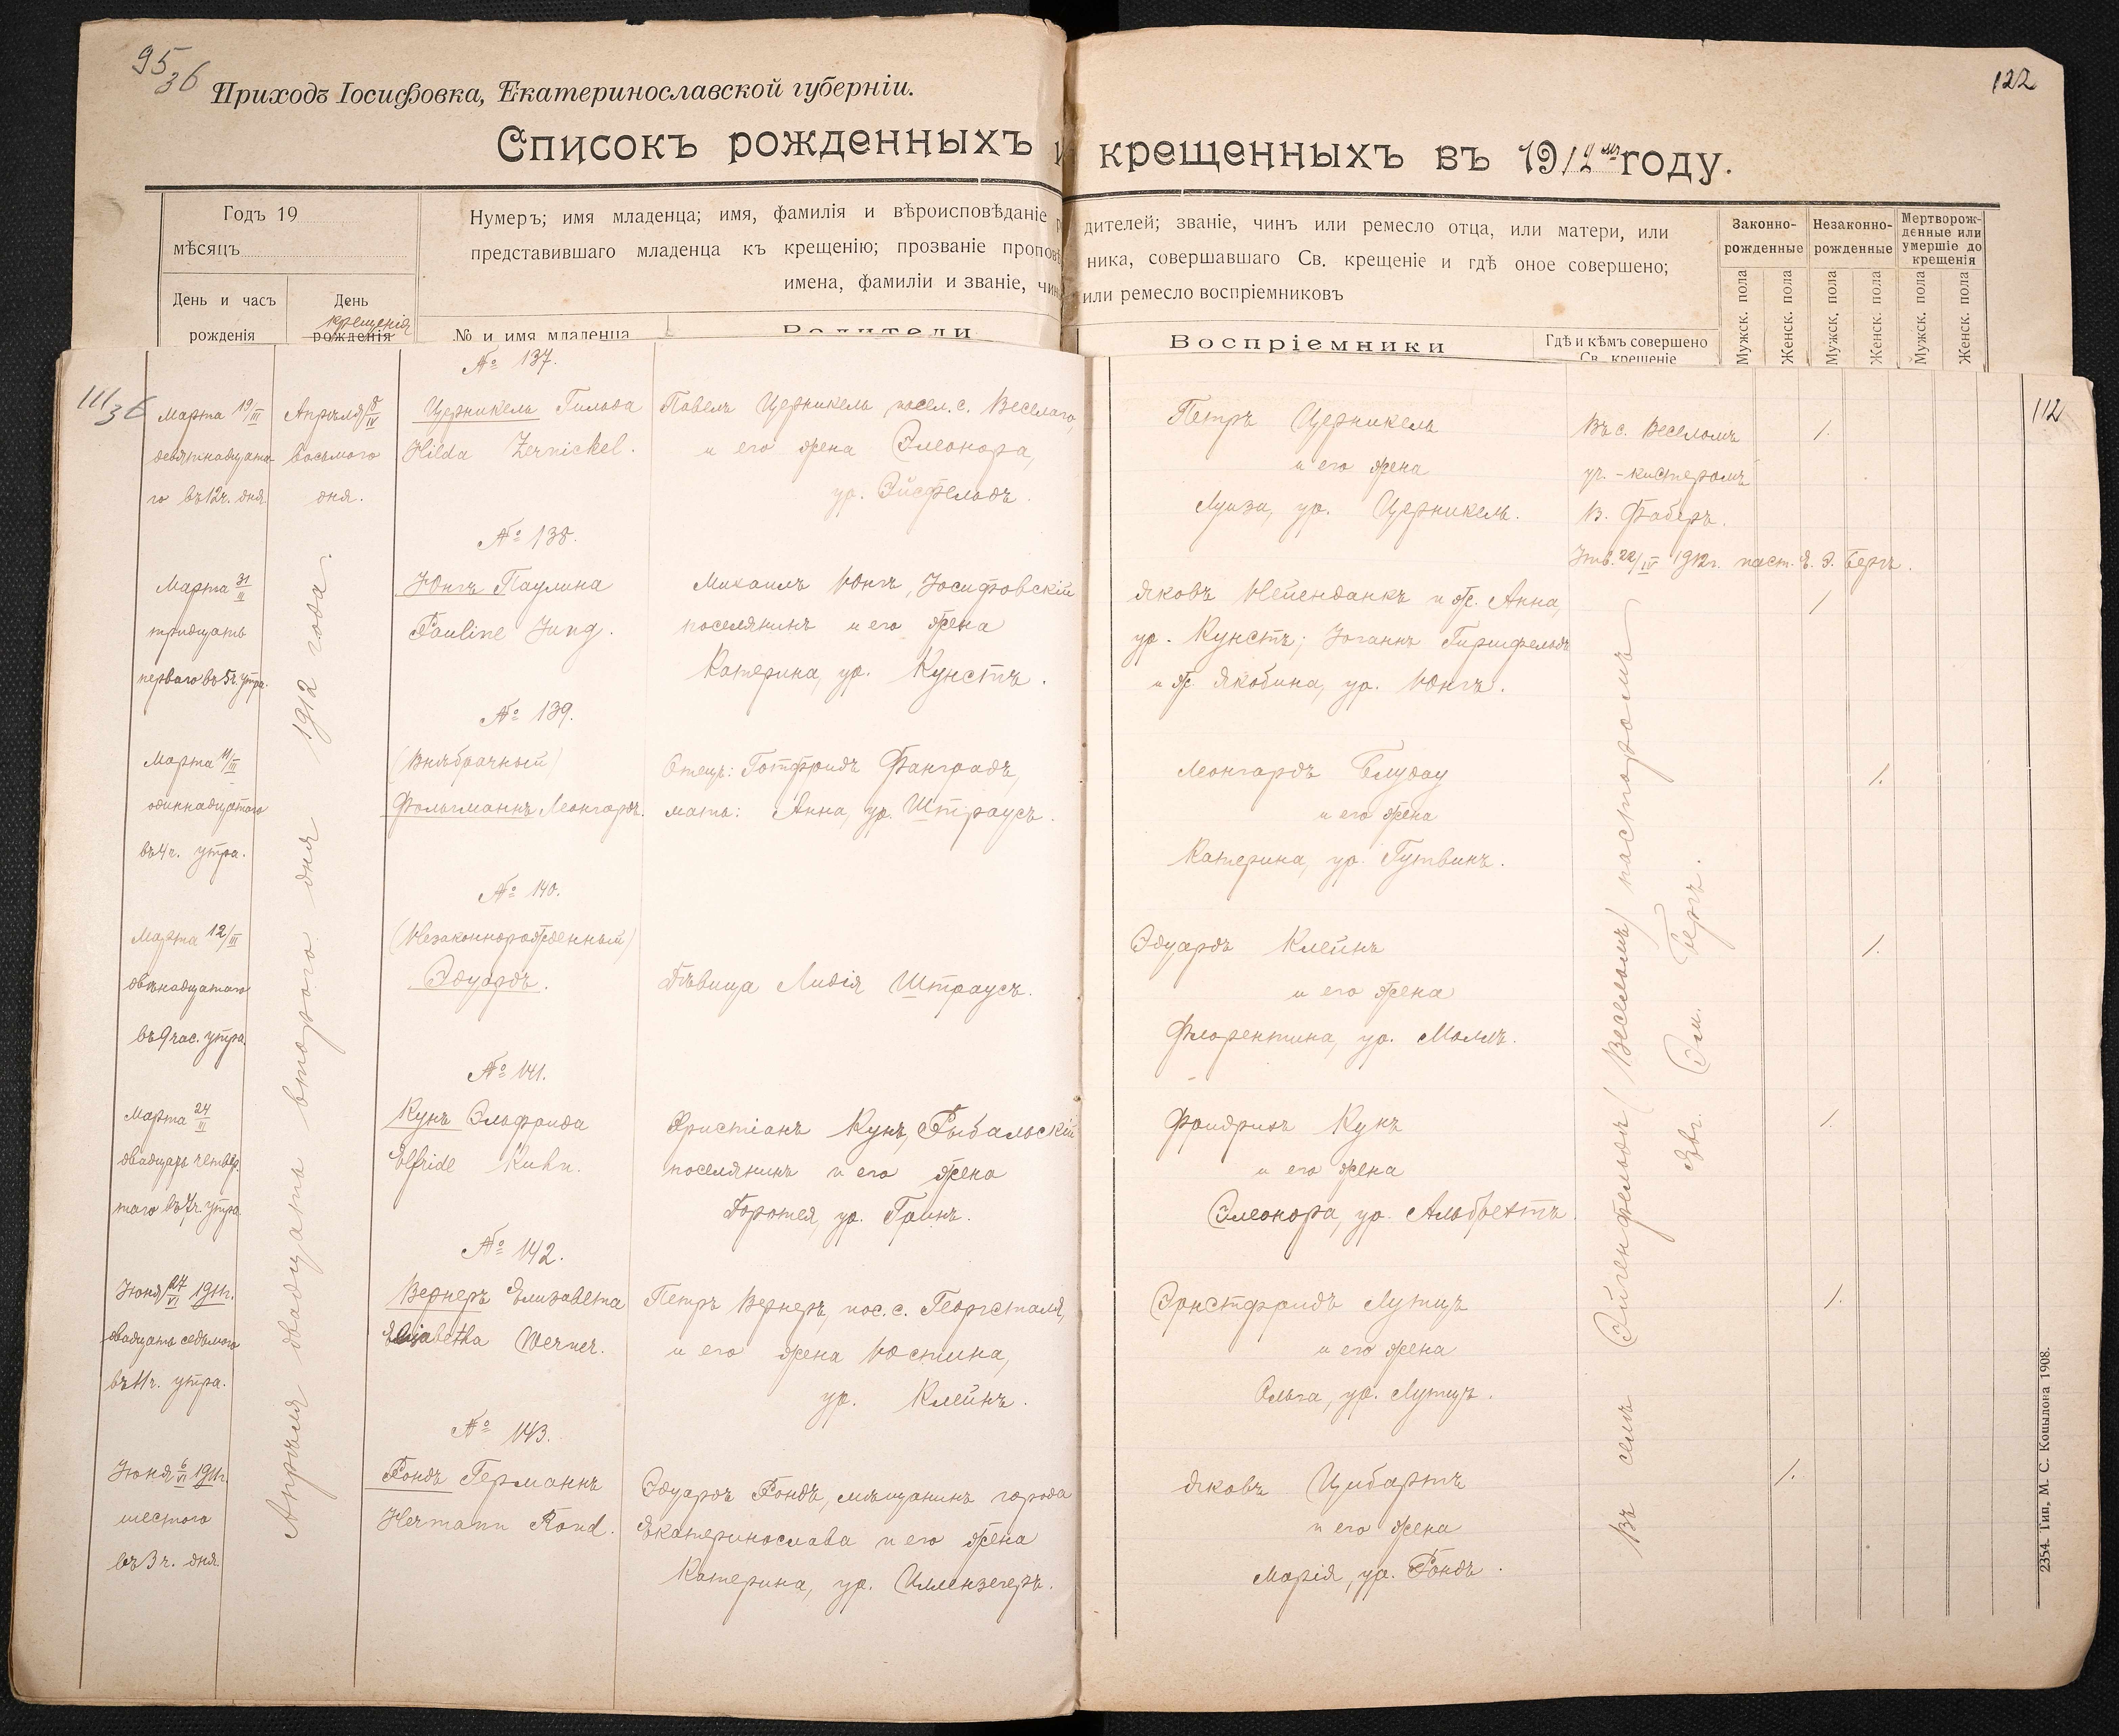 95
36
Приходъ Іосифовка, Екатеринославской губерніи.
122
Списокъ рожденныхъ и крещенныхъ въ 1912 году.
Годъ 19
мѣсяцъ
День и часъ рожденія
День рожденія
крещенія
Нумеръ; имя младенца; имя, фамилія и вѣроисповѣданіе
дителей; званіе, чинъ или ремесло отца, или матери, или
представившаго младенца къ крещенію; прозваніе пропов
ника, совершавшаго Св. крещеніе и гдѣ оное совершено;
имена, фамиліи и званіе, чин
или ремесло воспріемниковъ
№ и имя младенца
Родители
Воспріемники
Гдѣ и кѣмъ совершено
Св. крещеніе
Законно-
рожденные
Незаконно-
рожденные
Мертворож-
денные или
умершіе до
крещенія
Мужск. пола
Женск. пола
Мужск. пола
Женск. пола
Мужск. пола
Женск. пола
111
36
112
№ 137.
Марта 19/III
девятнадцата-
го въ 12ч. дня
Апрѣля 8/IV
восьмого
дня.
Церникель Гильда
Hilda Zernickel.
Павелъ Церникель посел. с. Веселаго,
и его жена Элеонора,
ур. Эйсфельдъ.
Петръ Церникель
и его жена
Луиза, ур. Церникель.
Въ с. Веселомъ
уч.-кистеромъ
В. Фаберъ.
Утв. 22/IV 1912г. паст. Е. Э. Бергъ.
1.
№ 138.
Марта 31/III
тридцать
перваго въ 5ч. утра.
Юнгъ Паулина
Pauline Jung.
Михаилъ Юнгъ, Іосифовскій
поселянинъ и его жена
Катерина, ур. Кунстъ.
Яковъ Нейенданкъ и ж. Анна,
ур. Кунстъ; Іоганнъ Гиршфельдъ
и ж. Якобина, ур. Юнгъ.
1
№ 139.
Марта 11/III
одиннадцатаго
въ 4ч. утра.
(Внѣбрачный)
Фольгманнъ Леонгардъ.
Отецъ: Готфридъ Фанградъ,
мать: Анна, ур. Штраусъ.
Леонгардъ Блудау
и его жена
Катерина, ур. Гутвинъ.
1.
№ 140.
Марта 12/III
двѣнадцатаго
въ 9 час. утра.
(Незаконнорожденный)
Эдуардъ.
Дѣвица Лидія Штраусъ.
Эдуардъ Клейнъ
и его жена
Флорентина, ур. Моллъ.
1.
№ 141.
Марта 24/III
двадцать четвер-
таго въ 7ч. утра
Кунъ Эльфрида
Elfride Kuhn.
Христіанъ Кунъ, Рыбальскій
поселянинъ и его жена
Доротея, ур. Гринъ.
Фридрихъ Кунъ
и его жена
Элеонора, ур. Альбрехтъ.
1.
№ 142.
Іюня 27/VI 1911г.
двадцать седьмого
въ 11ч. утра.
Вернеръ Елизавета
Elisabetha Werner.
Петръ Вернеръ, пос. с. Георгсталя,
и его жена Юстина,
ур. Клейнъ.
Эрнстфридъ Лутцъ
и его жена
Ольга, ур. Лутцъ.
1.
№ 143.
Іюня 6/VI 1911г.
шестого
въ 3ч. дня
Рондъ Германнъ
Hermann Rond.
Эдуардъ Рондъ, мѣщанинъ города
Екатеринослава и его жена
Катерина, ур. Иллензегеръ.
Яковъ Цибартъ
и его жена
Марія, ур. Рондъ.
1.
Апрѣля двадцать второго дня 1912 года.
Въ селѣ Эйгенфельдъ (Веселомъ) пасторомъ
Евг. Эм. Бергъ.
2354. Тип. М. С. Копылова 1908.